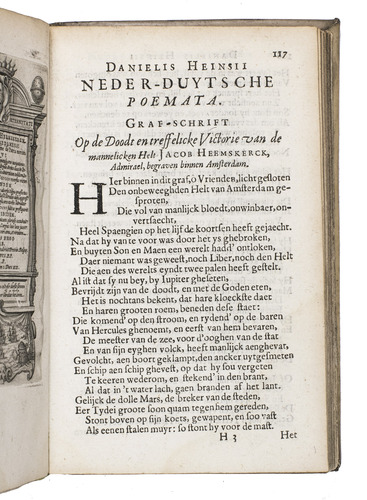 117
DANIELIS HEINSII
NEDER-DUYTSCHE
POEMATA.
GRAF-SCHRIFT
Op de Doodt en treffelicke Victorie van de
mannelicken Helt JACOB HEEMSKERCK,
Admirael, begraven binnen Amsterdam.
HIer binnen in dit graf, ô Vrienden, licht gesloten
Den onbeweeghden Helt van Amsterdam ge-
sproten,
Die vol van manlijck bloedt, onwinbaer, on-
vertsaecht,
Heel Spaengien op het lijf de koortsen heeft gejaecht.
Na dat hy van te voor was door het ys ghebroken,
En buyten Son en Maen een werelt hadd' ontloken,
Daer niemant was geweest, noch Liber, noch den Helt
Die aen des werelts eyndt twee palen heeft gestelt.
Al ist dat sy nu bey, by Iupiter gheseten,
Bevrijdt zijn van de doodt, en met de Goden eten,
Het is nochtans bekent, dat hare kloeckste daet
En haren grooten roem, beneden dese staet:
Die komend' op den stroom, en rydend' op de baren
Van Hercules ghenoemt, en eerst van hem bevaren,
De meester van de zee, voor d'ooghen van de stat
En van sijn eyghen volck, heeft manlijck aenghevat,
Gevolcht, aen boort geklampt, den ancker uytgesmeten
En schip aen schip ghevest, op dat hy sou vergeten
Te keeren wederom, en stekend' in den brant,
Al dat in 't water lach, gaen branden af het lant.
Gelijck de dolle Mars, de breker van de steden,
Eer Tydei groote soon quam tegen hem gereden,
Stont boven op sijn koets, gewapent, en soo vast
Als eenen stalen muyr: so stont hy voor de mast.
H 3
Het